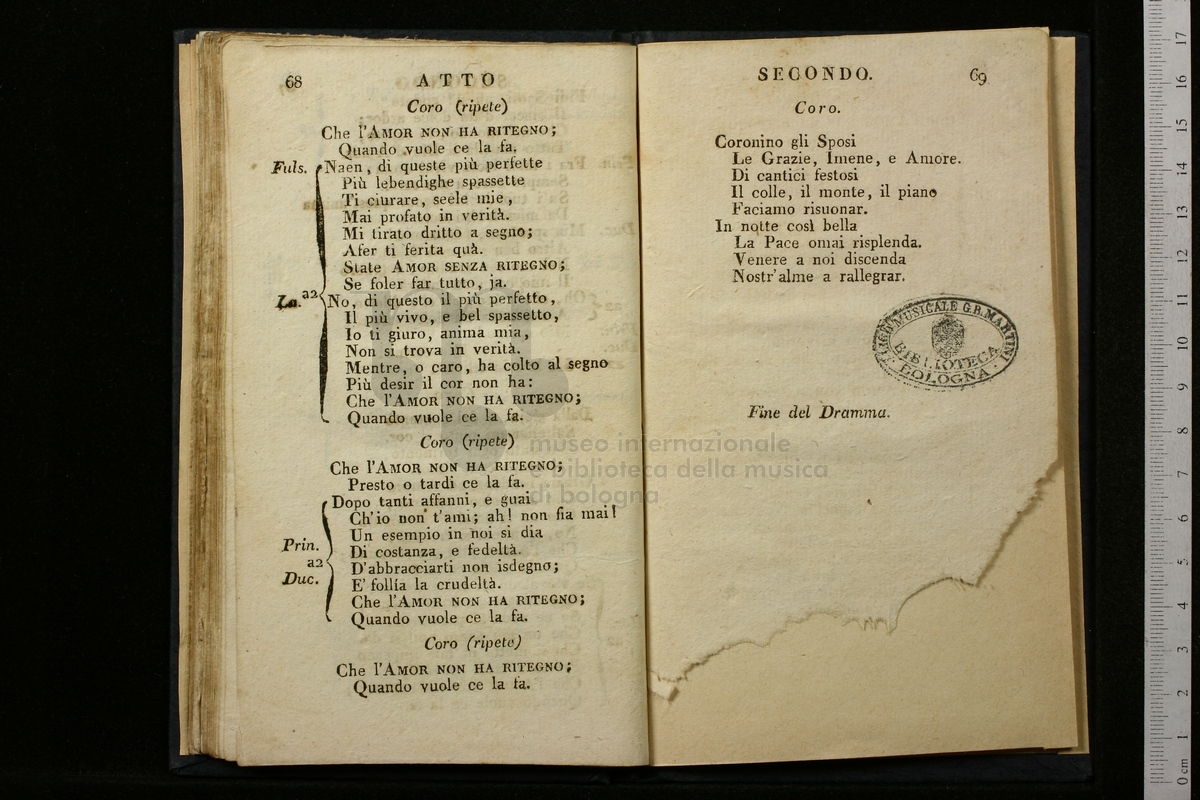 68 ATTO
Coro (ripete)
Che l'AMOR NON HA RITEGNO;
Quando vuole ce la fa.
Fuls. Naen, di queste più perfette
Più lebendighe spassette
Ti ciurare, seele mie,
Mai profato in verità.
Mi tirato dritto a segno;
Afer ti ferita quà.
State AMOR SENZA RITEGNO;
Se foler far tutto, ja.
a2
La. No, di questo il più perfetto,
Il più vivo, e bel spassetto,
Io ti giuro, anima mia,
Non si trova in verità.
Mentre, o caro, ha colto al segno
Più desir il cor non ha:
Che l'AMOR NON HA RITEGNO;
Quando vuole ce la fa.
Coro (ripete)
Che l'AMOR NON HA RITEGNO;
Presto o tardi ce la fa.
Dopo tanti affanni, e guai
Ch'io non t'ami; ah! non fia mai!
Un esempio in noi si dia
Prin. Di costanza, e fedeltà.
a2 D'abbracciarti non isdegno;
Duc. E' follìa la crudeltà.
Che l'AMOR NON HA RITEGNO;
Quando vuole ce la fa.
Coro (ripete)
Che l'AMOR NON HA RITEGNO;
Quando vuole ce la fa.
SECONDO. 69
Coro.
Coronino gli Sposi
Le Grazie, Imene, e Amore.
Di cantici festosi
Il colle, il monte, il piano
Faciamo risuonar.
In notte così bella
La Pace omai risplenda.
Venere a noi discenda
Nostr'alme a rallegrar.
MUSICALE G.B. MARTINI
BIBLIOTECA
BOLOGNA
Fine del Dramma.
museo internazionale
e biblioteca della musica
di bologna
0 cm 1 2 3 4 5 6 7 8 9 10 11 12 13 14 15 16 17